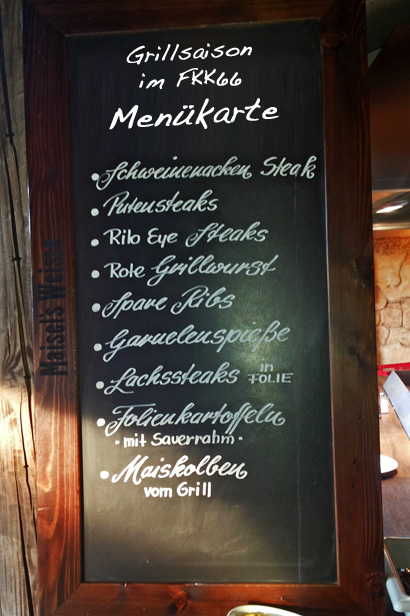 Grillsaison
im FKK66
Menükarte
• Schweinenacken Steak
• Putensteaks
• Rib Eye Steaks
• Rote Grillwurst
• Spare Ribs
• Garnelenspieße
• Lachssteaks in FOLIE
• Folienkartoffeln
• mit Sauerrahm •
• Maiskolben
vom Grill
Maisel's Weisse